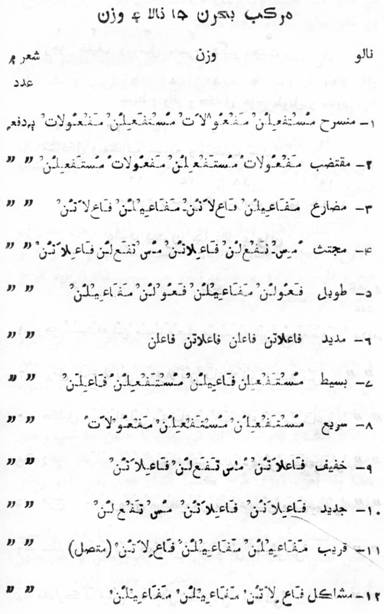 مرکب بحرن جا نالا ۽ وزن
نالو وزن شعر ۾
عدد
۱- منسرح مُسْتَفعِلُنْ مَفْعُوْلَاتُ مُسْتَفْعِلُنْ مَفْعُولَاتُ ٻہ دفعہ
۲- مقتضب مَفْعُولَاتُ مُسْتَفْعِلُنْ مَفْعُولَاتُ مُستَفْعِلُنْ " "
۳- مضارع مَفَاعِيلُنْ فَاعِ لَاتُنْ مَفَاعِيلُنْ فَاعِ لَاتُنْ " "
۴- مجتث مُسِ تَفْعِ لُنْ فَاعِلَاتُنْ مُسِ تَفْعِ لُنْ فَاعِلَاتُنْ " "
۵- طويل فَعُولُنْ مَفَاعِيلُنْ فَعُولُنْ مَفَاعِيلُنْ " "
۶- مديد فاعلاتن فاعلن فاعلاتن فاعلن " "
۷- بسيط مُسْتَفْعِلُن فَاعِلُنْ مُسْتَفْعِلُنْ فَاعِلُنْ " "
۸- سريع مُسْتَفْعِلُنْ مُسْتَفْعِلُنْ مَفْعُولَاتُ " "
۹- خفيف فَاعِلَاتُنْ مُسِ تَفْعِ لُنْ فَاعِلَاتُنْ " "
۱۰- جديد فَاعِلَاتُنْ فَاعِلَاتُنْ مُسِ تَفْعِ لُنْ " "
۱۱- قريب مَفَاعِيلُنْ مَفَاعِيلُنْ فَاعِ لَاتُنْ (متصل) " "
۱۲- مشاکل فَاعِ لَاتُنْ مَفَاعِيلُنْ مَفَاعِيلُنْ " "